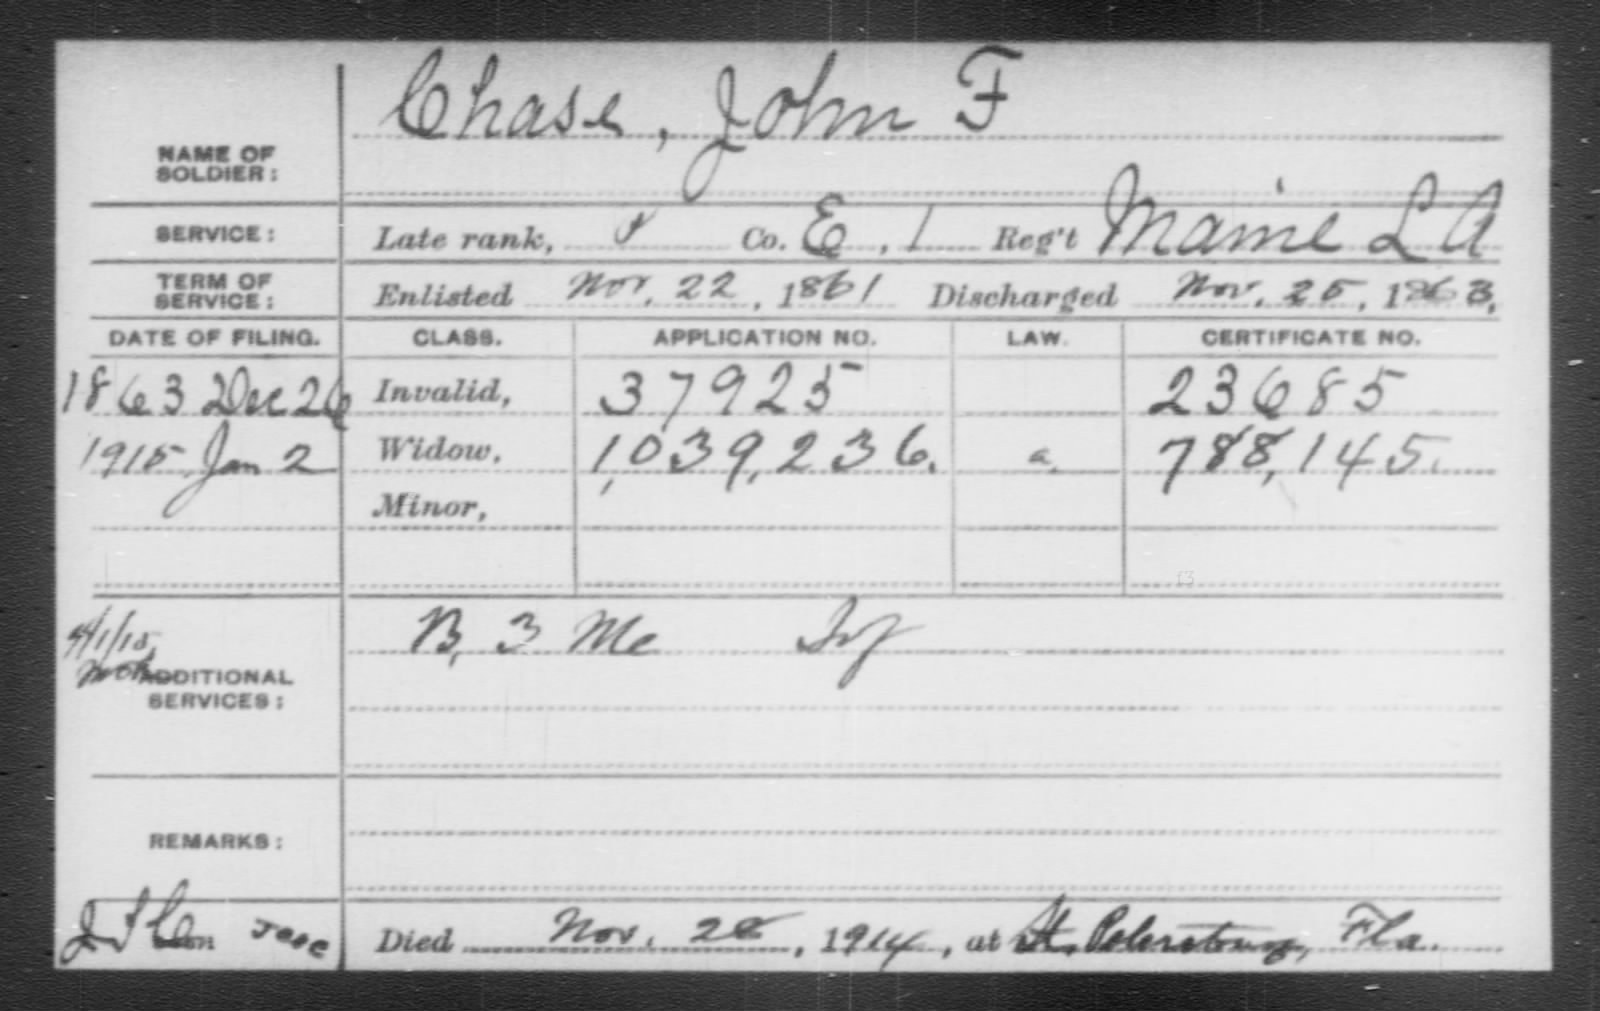 Chase, John F
NAME OF
SOLDIER:
SERVICE: Late rank, P Co. E, 1 Reg't Maine L A
TERM OF
SERVICE: Enlisted Nov. 22, 1861 Discharged Nov. 25, 1863,
DATE OF FILING. CLASS. APPLICATION NO. LAW. CERTIFICATE NO.
1863 Dec 26 Invalid, 37925 23685
1915 Jan 2 Widow, 1,039,236. a. 788,145.
Minor,
B, 3 Me Inf
4/1/15,
ADDITIONAL
SERVICES:
REMARKS:
Died Nov. 28, 1914, at St. Petersburg, Fla.